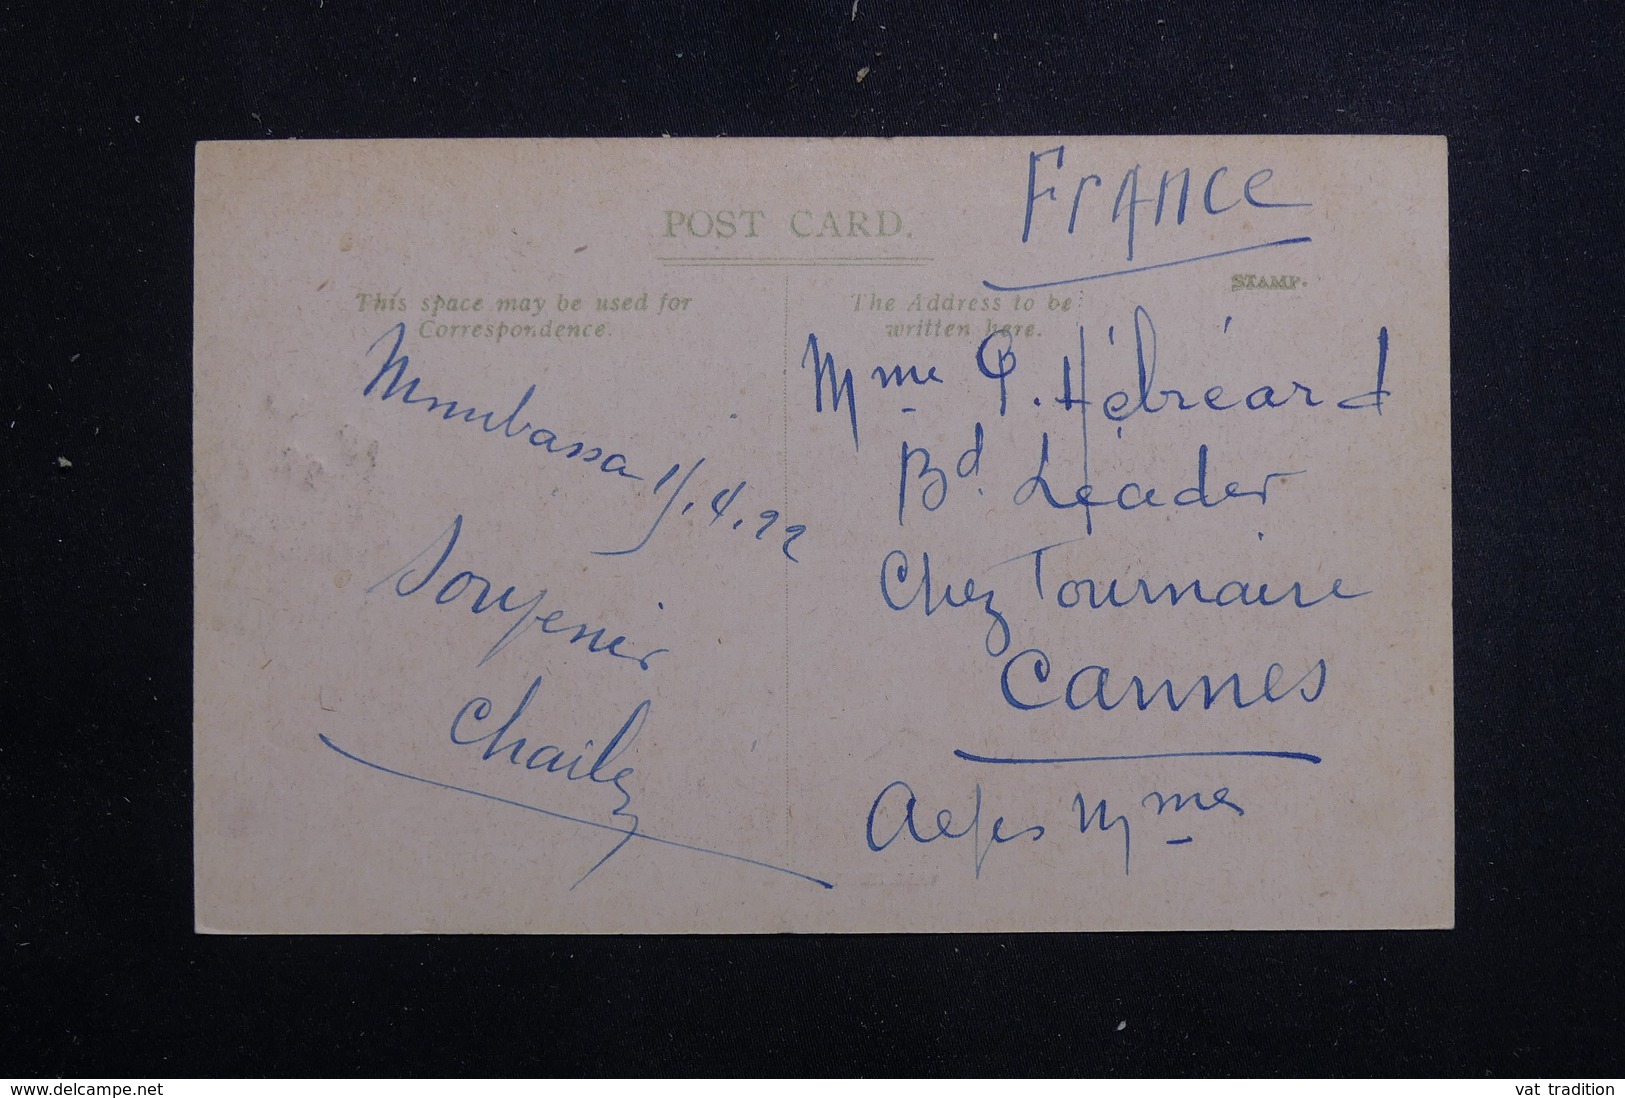 France
POST CARD.
STAMP.
This space may be used for
Correspondence.
The Address to be
written here.
Mmubassa 1/.4.22
Souvenir
Mme P. Hébréard
Bd. Leader
Chez Tournaire
Cannes
Mmes
www.delcampe.net
vat tradition